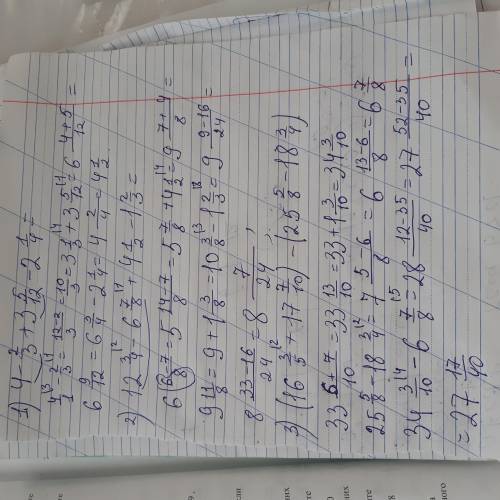 1) 4 - 2/3 + 3 5/12 - 2 1/4 =
4/1 - 2/3 = 12-2/3 = 10/3 = 3 1/3 + 3 5/12 = 6 4+5/12 =
6 9/12 = 6 3/4 - 2 1/4 = 4 2/4 = 4 1/2
2) 12 3/4 - 6 7/8 + 4 1/2 - 1 2/3 =
6 6-7/8 = 5 14-7/8 = 5 7/8 + 4 1/2 = 9 7+4/8 =
9 11/8 = 9 + 1 3/8 = 10 3/8 - 1 2/3 = 9 9-16/24 =
8 33-16/24 = 8 7/24 ;
3) (16 3/5 + 17 7/10) - (25 5/8 - 18 3/4)
33 6+7/10 = 33 13/10 = 33 + 1 3/10 = 34 3/10
25 5/8 - 18 3/4 = 7 5-6/8 = 6 13-6/8 = 6 7/8
34 3/10 - 6 7/8 = 28 12-35/40 = 27 52-35/40 =
= 27 17/40